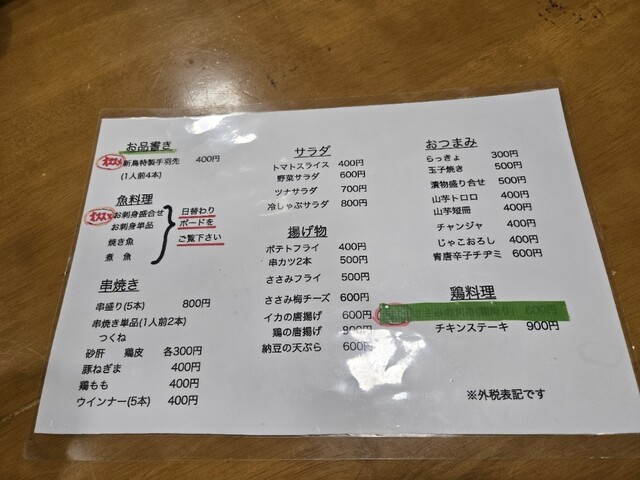 お品書き
オススメ
新鳥特製手羽先 400円
(1人前4本)
魚料理
オススメ
お刺身盛合せ
お刺身単品
焼き魚
煮魚
日替わり
ボードを
ご覧下さい
串焼き
串盛り(5本) 800円
串焼き単品(1人前2本)
つくね
砂肝 鶏皮 各300円
豚ねぎま 400円
鶏もも 400円
ウインナー(5本) 400円
サラダ
トマトスライス 400円
野菜サラダ 600円
ツナサラダ 700円
冷しゃぶサラダ 800円
揚げ物
ポテトフライ 400円
串カツ2本 500円
ささみフライ 500円
ささみ梅チーズ 600円
イカの唐揚げ 600円
鶏の唐揚げ 800円
納豆の天ぷら 600円
おつまみ
らっきょ 300円
玉子焼き 500円
漬物盛り合せ 500円
山芋トロロ 400円
山芋短冊 400円
チャンジャ 400円
じゃこおろし 400円
青唐辛子チヂミ 600円
鶏料理
600円
チキンステーキ 900円
※外税表記です